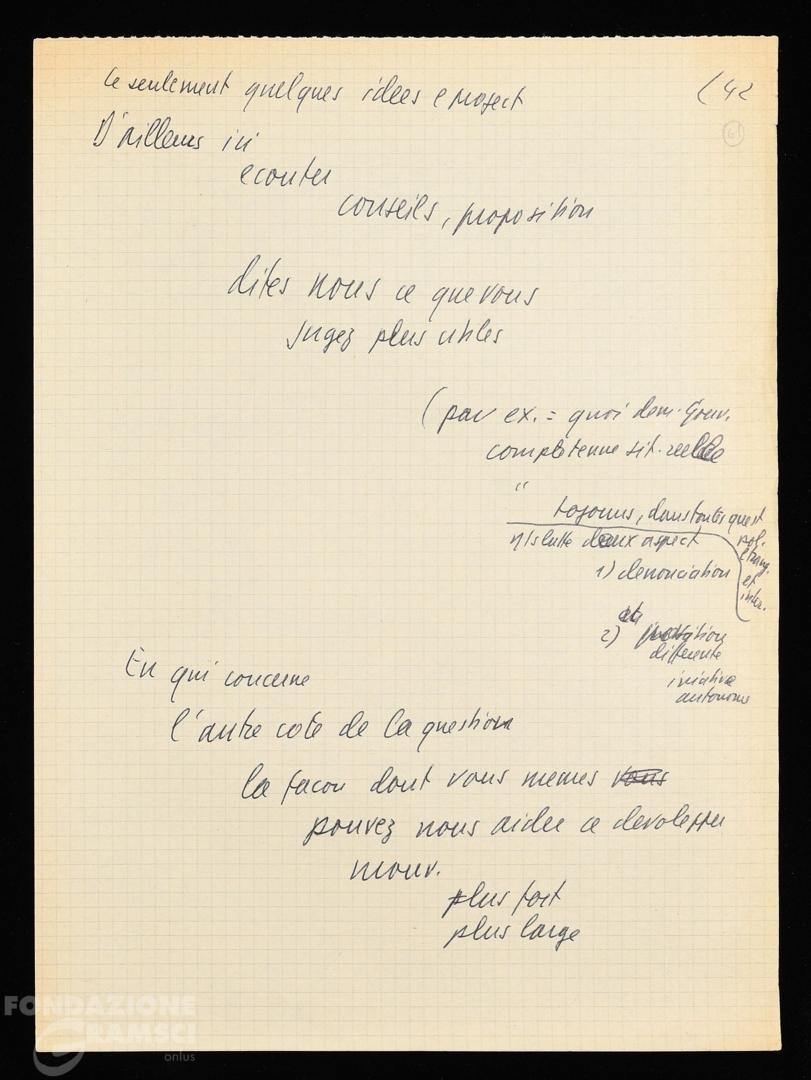 Ce seulement quelques idees e project
(42
61
D'ailleurs ici
ecouter
conseils, proposition
dites nous ce que vous
jugez plus utiles
(par ex. = quoi dem. Gouv.
sit. reelle
"
toujours, dans toutes quest
pol.
etrang.
et
inter.
lutte deux aspect
1) denonciation
et
2) position
differente
iniative
autonome
En qui concerne
l'autre cote de la question
la facon dont vous memes vous
pouvez nous aider a devolepper
mouv.
plus fort
plus large
FONDAZIONE
GRAMSCI
onlus